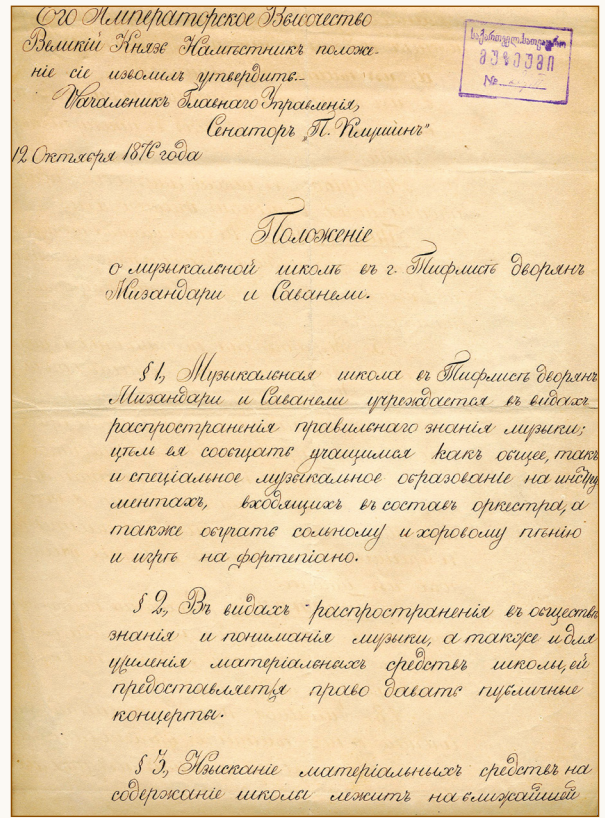 Его Императорское Высочество
Великій Князь Намѣстникъ положе-
ніе сіе изволилъ утвердить.-
Начальникъ Главнаго Управленія,
Сенаторъ „П. Клушинъ"
12 Октября 1876 года
საქართველ. სახელმწიფო
მუზეუმი
№
Положеніе
о музыкальной школѣ въ г. Тифлисѣ дворянъ
Мизандари и Саванели.
§ 1, Музыкальная школа въ Тифлисѣ дворянъ
Мизандари и Саванели учреждается въ видахъ
распространенія правильнаго знанія музыки;
цѣль ея сообщать учащимся какъ общее, такъ
и спеціальное музыкальное образованіе на инстру
ментахъ, входящихъ въ составъ оркестра, а
также обучать сольному и хоровому пѣнію
и игрѣ на фортепіано.
§ 2, Въ видахъ распространенія въ обществѣ
знанія и пониманія музыки, а также и для
усиленія матеріальныхъ средствъ школы, ей
предоставляется право давать публичные
концерты.
§ 3, Изысканіе матеріальныхъ средствъ на
содержаніе школы лежитъ на ближайшей